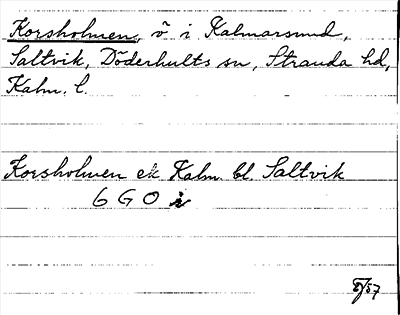 Korsholmen, ö i Kalmarsund,
Saltvik, Döderhults sn, Stranda hd,
Kalm. l.
Korsholmen ek Kalm. bl. Saltvik
6 G O i
57